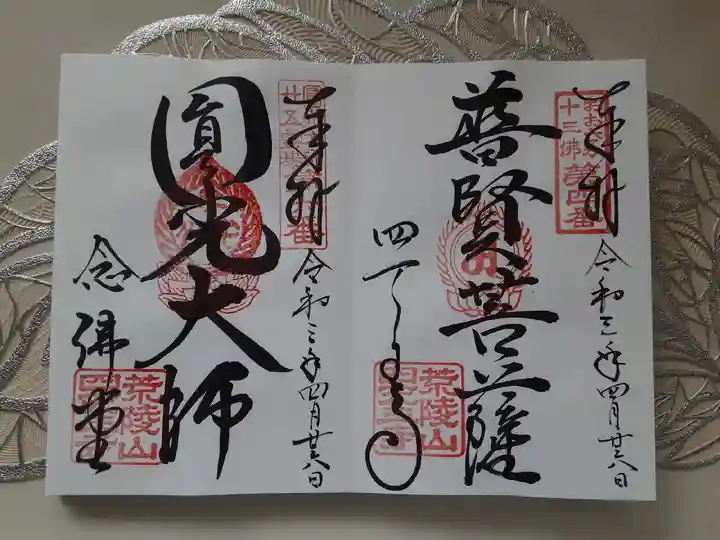 奉拝
令和三年四月廿八日
おおさか十三佛第四番
普賢菩薩
四天王寺
荒陵山
奉拝
令和三年四月廿八日
圓光大師
念佛堂
荒陵山